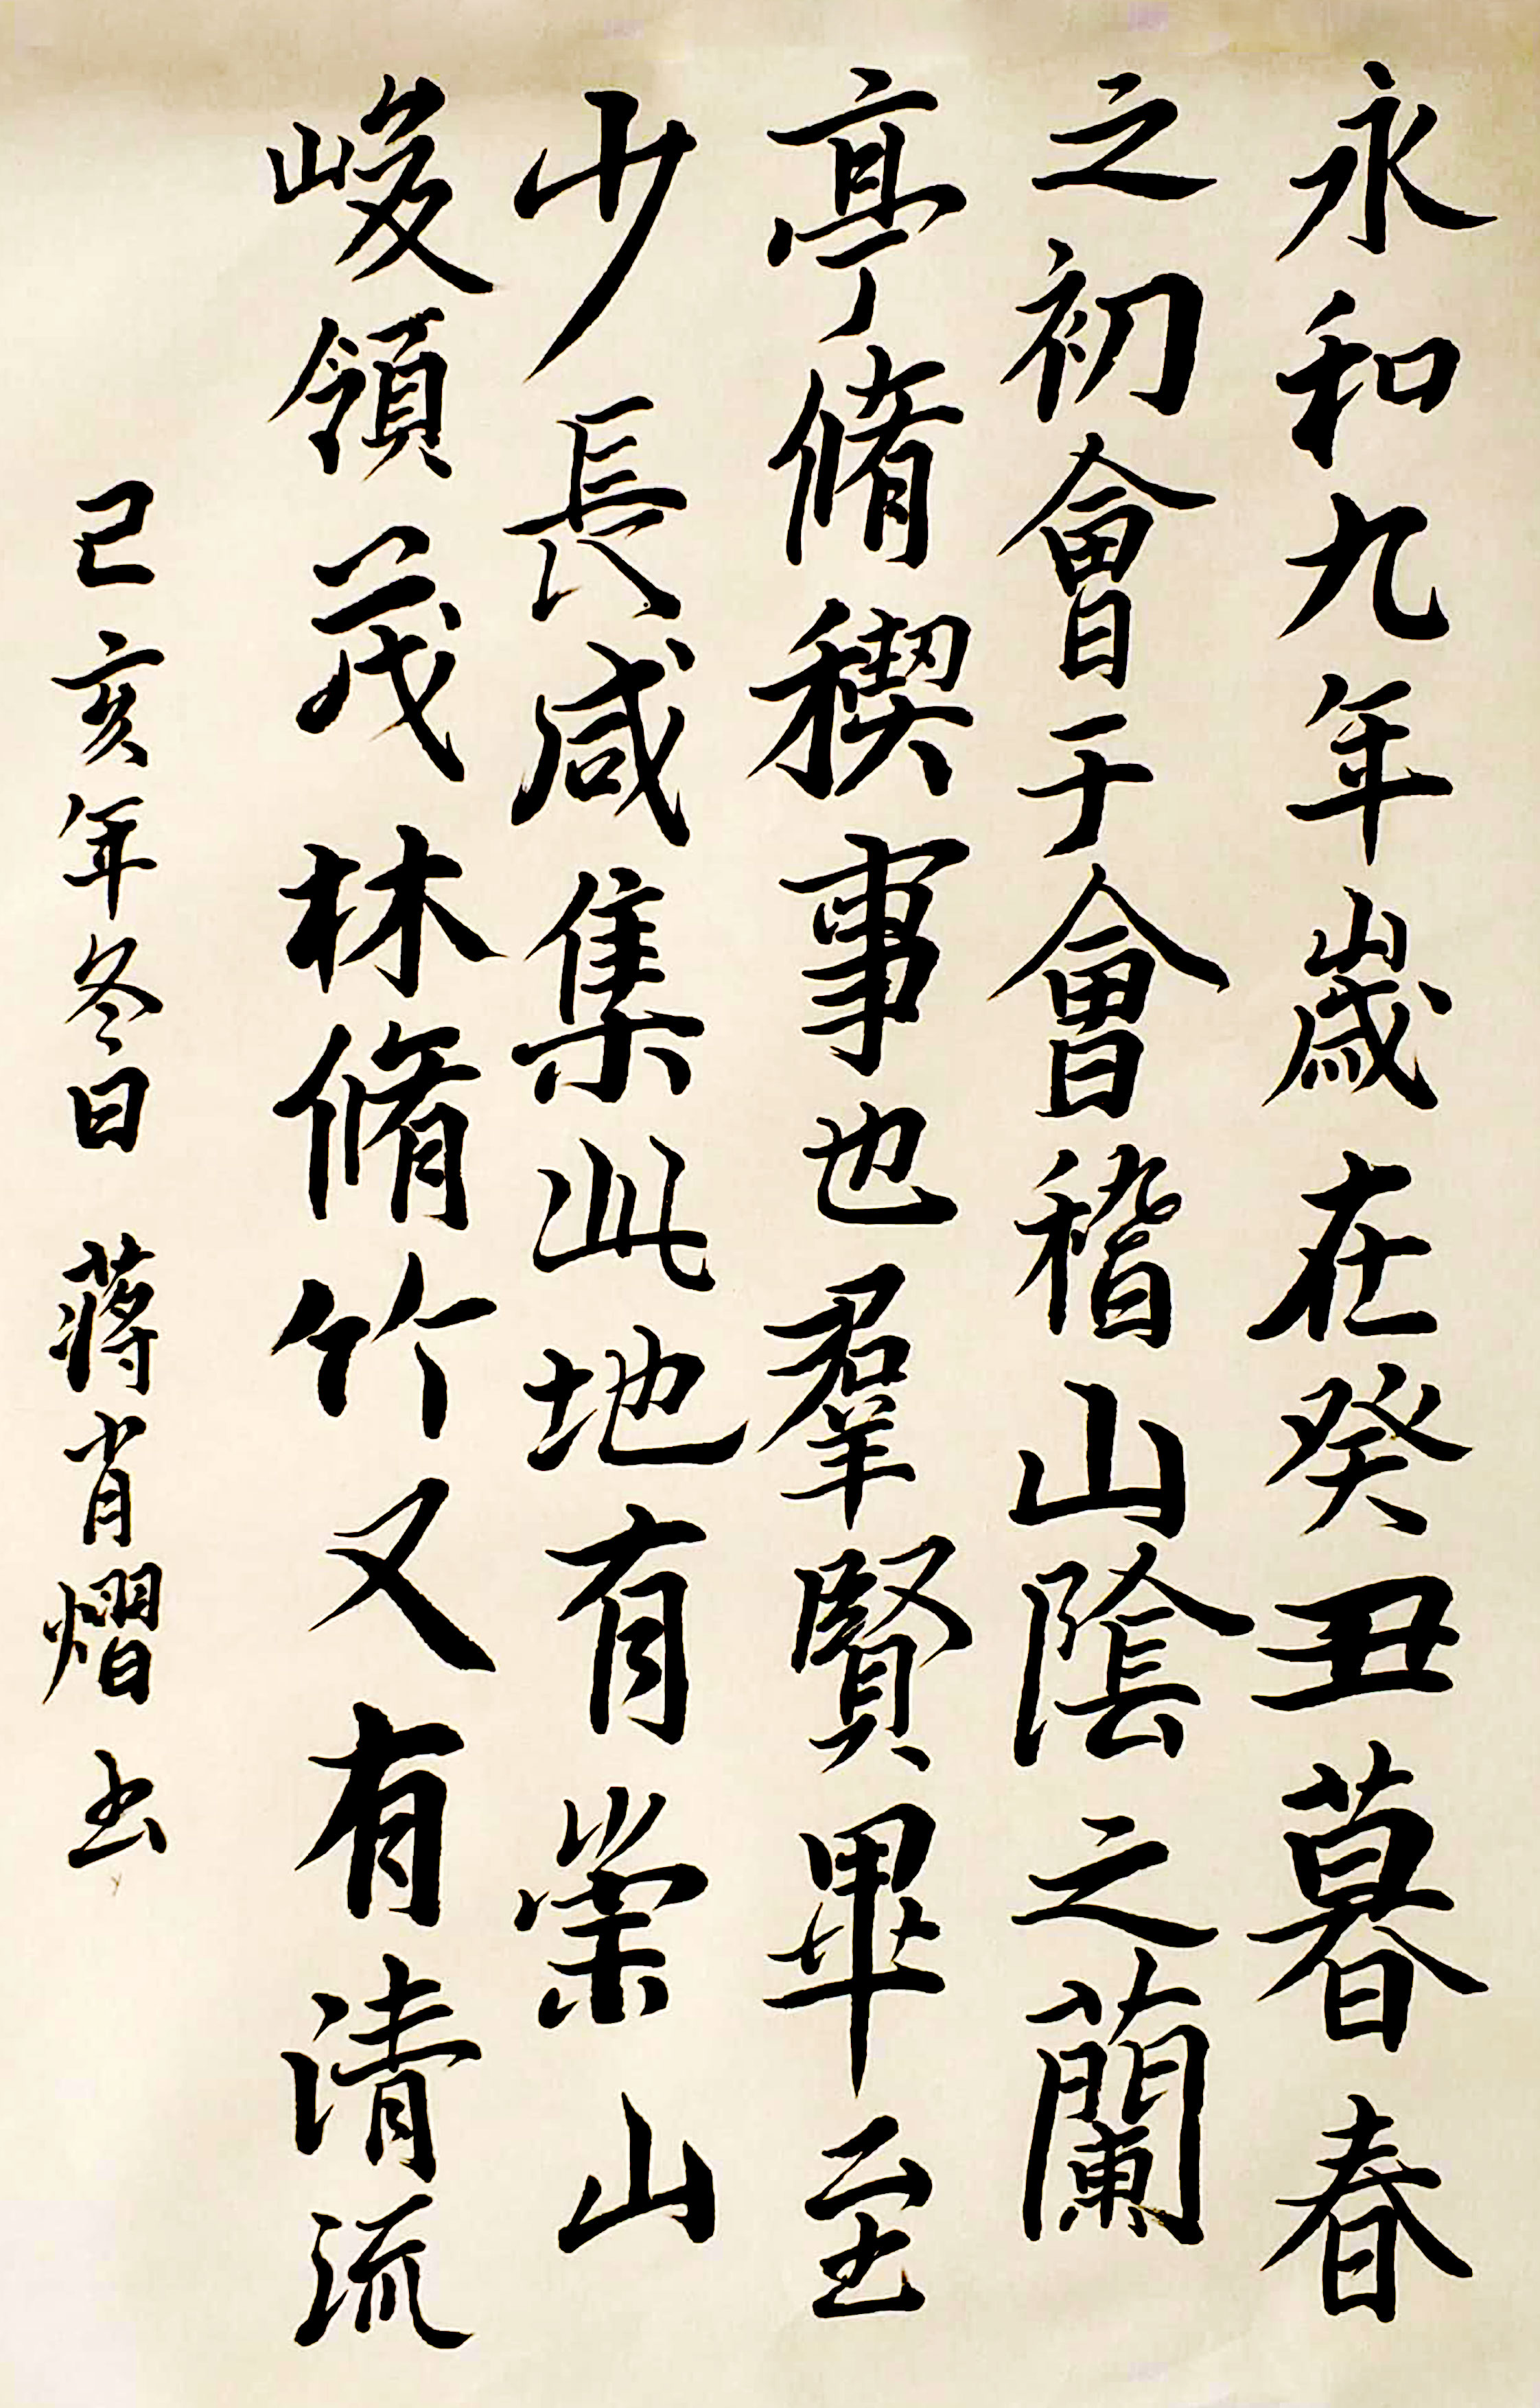 永和九年歲在癸丑暮春
之初會于會稽山陰之蘭
亭脩稧事也羣賢畢至
少長咸集此地有崇山
峻領茂林脩竹又有清流
己亥年冬日 蔣肖熠书